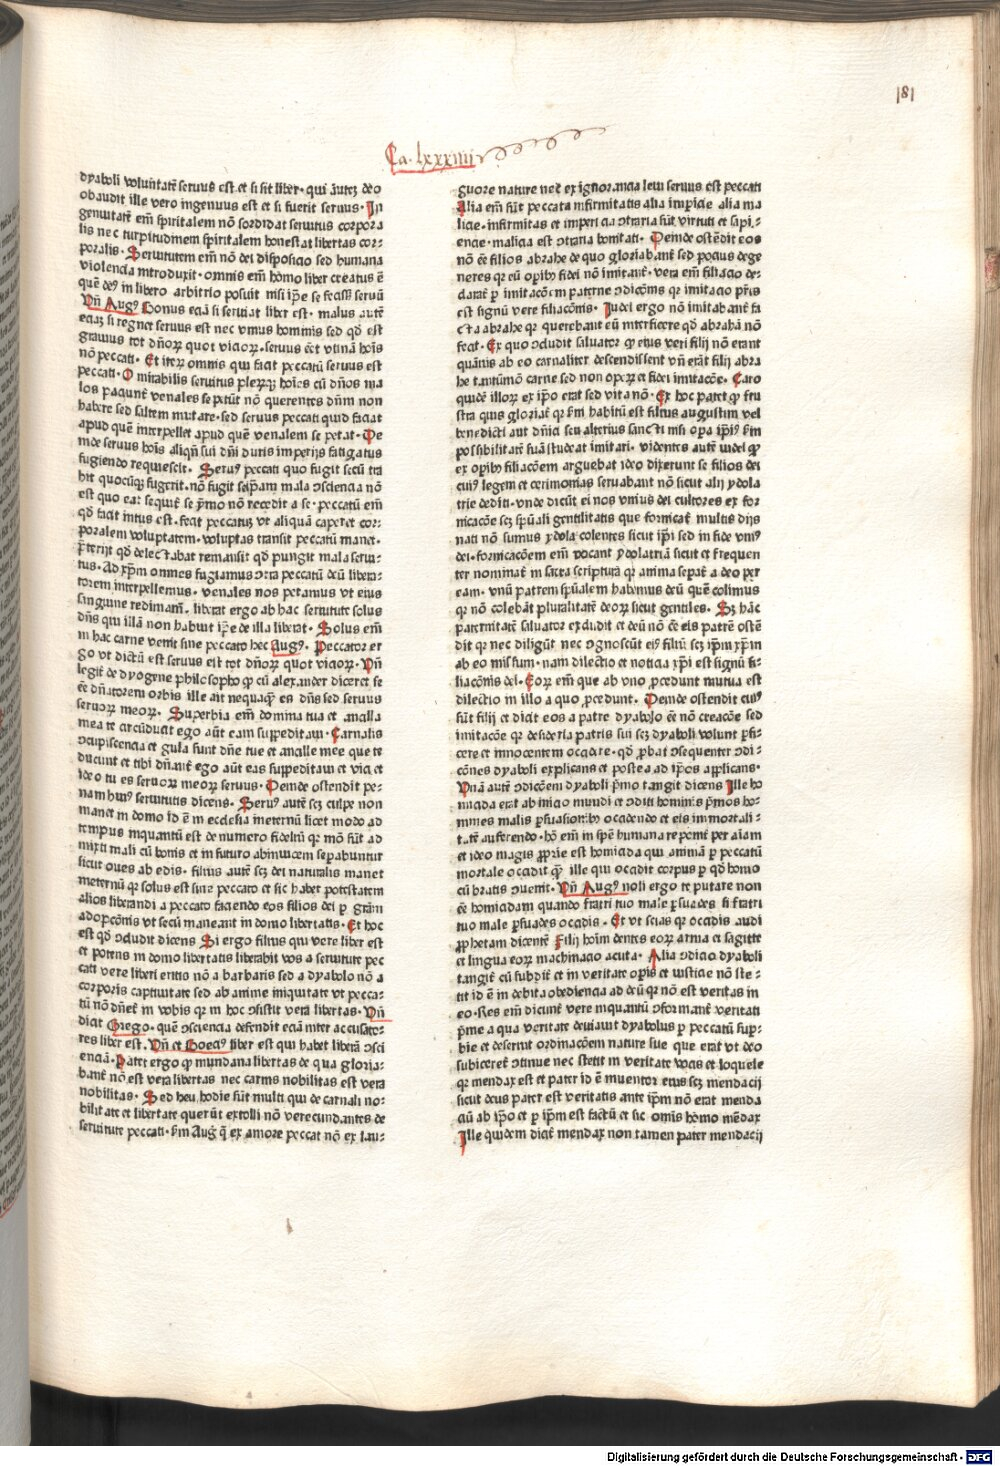 181
Ca. lxxxiiij
dyaboli voluntatē seruus est et si sit liber · qui autez deo
obaudit ille vero ingenuus est et si fuerit seruus · In
genuitatē em̄ spiritalem nō sordidat seruitus corpora
lis nec turpitudinem spiritalem honestat libertas cor-
poralis · Seruitutem em̄ nō dei dispositio sed humana
violencia introduxit · omnis em̄ homo liber creatus ē
quē deꝰ in libero arbitrio posuit nisi ip̄e se fecisset seruū
Vn̄ Augꝰ Bonus eciā si seruiat liber est · malus autē
eciaz si regnet seruus est nec vnius hominis sed qd̄ est
grauius tot dn̄oꝝ quot vicioꝝ · seruus ēēt vtinā hoīs
nō peccati · Et iteꝝ omnis qui facit peccatū seruus est
peccati · O mirabilis seruitus pleꝝqꝫ hoīes cū dn̄os ma
los paciunt̄ venales se petūt nō querentes dn̄m non
habere sed saltem mutare · sed seruus peccati quid faciat
apud quē interpellet apud quē venalem se petat · De
inde seruus hoīs aliqn̄ sui dn̄i duris imperijs fatigatus
fugiendo requiescit · Seruꝰ peccati quo fugit secū tra
hit quocūqꝫ fugerit · nō fugit seip̄am mala ꝯsciencia nō
est quo eat sequit̄ se p̄mo nō recedit a se · peccatū em̄
qd̄ facit intus est · fecit peccatuꝫ vt aliquā caperet cor-
poralem voluptatem · voluptas transit peccatū manet ·
p̄terijt qd̄ delectabat remansit qd̄ pungit mala serui-
tus · Ad xp̄m omnes fugiamus ꝯtra peccatū deū libera-
torem interpellemus · venales nos petamus vt eius
sanguine redimam̄ · liberat ergo ab hac seruitute solus
dn̄s qui illā non habuit ip̄e de illa liberat · Solus em̄
in hac carne venit sine peccato hec Augꝰ · Peccator er
go vt dictū est seruus est tot dn̄oꝝ quot vicioꝝ · Vn̄
legit̄ de dyogene philosopho ꝙ cū alexander diceret se
ēē dn̄atorem orbis ille ait nequaqꝫ es dn̄s sed seruus
seruoꝝ meoꝝ · Superbia em̄ domina tua et ancilla
mea te circūducit ego aūt eam suppeditaui · Carnalis
ꝯcupiscencia et gula sunt dn̄e tue et ancille mee que te
ducunt et tibi dn̄ant̄ ego aūt eas suppeditaui et vici et
ideo tu es seruoꝝ meoꝝ seruus · Deinde ostendit pe-
nam huiꝰ seruitutis dicens · Seruꝰ autē sez culpe non
manet in domo id ē in ecclesia ineternū licet modo ad
tempus inquantū est de numero fideliū qꝛ mō sūt ad
mixti mali cū bonis et in futuro abinuicem separabuntur
sicut oues ab edis · filius autē sez dei naturalis manet
ineternū qꝛ solus est sine peccato et sic habet potestatem
alios liberandi a peccato faciendo eos filios dei ꝑ grām
adopcōnis vt secū maneant in domo libertatis · Et hoc
est qd̄ ꝯcludit dicens Si ergo filius qui vere liber est
et potens in domo libertatis liberabit vos a seruitute pec
cati vere liberi eritis nō a barbaris sed a dyabolo nō a
corporis captiuitate sed ab anime iniquitate vt pecca-
tū nō dn̄et̄ in vobis qꝛ in hoc ꝯsistit vera libertas · Vn̄
dicit Grego · quē ꝯsciencia defendit eciā inter accusato-
res liber est · Vn̄ et Boeciꝰ liber est qui habet liberā ꝯsci
enciā · Patet ergo ꝙ mundana libertas de qua gloria-
bant̄ nō est vera libertas nec carnis nobilitas est vera
nobilitas · Sed heu hodie sūt multi qui de carnali no-
bilitate et libertate querūt extolli nō verecundantes de
seruitute peccati · scd̄m Aug̉ q̄ ex amore peccat nō ex lan-
guore nature nec ex ignorancia leui seruus est peccati
Alia em̄ sūt peccata infirmitatis alia impicie alia ma
licie · infirmitas et impericia ꝯtraria sūt virtuti et sapi-
encie · malicia est ꝯtraria bonitati · Deinde ostēdit eos
nō ēē filios abrahe de quo gloriabant̄ sed pocius dege
neres qꝛ eū oꝑibꝰ fidei nō imitant̄ · vera em̄ filiacio de-
clarat̄ ꝑ imitacōēm paterne ꝯdicōnis qꝛ imitacio pr̄is
est signū vere filiacōnis · Iudei ergo nō imitabant̄ fa
cta abrahe qꝛ querebant eū interficere qd̄ abrahā nō
fecit · Ex quo ꝯcludit saluator ꝙ eius veri filij nō erant
quāuis ab eo carnaliter descendissent vn̄ erāt filij abra
he tantūmō carne sed non opeꝝ et fidei imitacōe · Caro
quidē illoꝝ ex ip̄o erat sed vita nō · Ex hoc patet ꝙ fru
stra quis gloriat̄ qꝛ scd̄m habitū est filius augustini vel
benedicti aut dn̄ici seu alterius sancti nisi oꝑa ip̄iꝰ scd̄m
possibilitatē suā studeat imitari · videntes autē iudei ꝙ
ex oꝑibꝰ filiacōem arguebat ideo dixerunt se filios dei
cuiꝰ legem et cerimonias seruabant nō sicut alij ydola
trie dediti · vnde dicūt ei nos vnius dei cultores ex for
nicacōe sez sp̄uali gentilitatis que fornicat̄ multis dijs
nati nō sumus ydola colentes sicut ip̄i sed in fide vniꝰ
dei · fornicacōem em̄ vocant ydolatriā sicut et frequen
ter nominat̄ in sacra scriptura qꝛ anima sepat̄ a deo per
eam · vnū patrem sp̄ualem habemus deū quē colimus
qꝛ nō colebāt pluralitatē deoꝝ sicut gentiles · Sꝫ hāc
paternitatē saluator excludit et deū nō ēē eis patrē ostē
dit qꝛ nec diligūt nec ꝯgnoscūt eiꝰ filiū sez ip̄m xp̄m
ab eo missum · nam dilectio et noticia xp̄i est signū fi-
liacōnis dei · Eoꝝ em̄ que ab vno ꝓcedunt mutua est
dilectio in illo a quo ꝓcedunt · Deinde ostendit cuiꝰ
sūt filij et dicit eos a patre dyabolo ēē nō creacōne sed
imitacōne qꝛ desideria patris sui sez dyaboli volunt ꝑfi-
cere et innocentem occidere · qd̄ ꝓbat ꝯsequenter ꝯdi-
cōnes dyaboli explicans et postea ad ip̄os applicans ·
Vnā autē ꝯdicōem dyaboli p̄mo tangit dicens Ille ho
micida erat ab inicio mundi et ꝯditi hominis p̄mos ho-
mines malis ꝑsuasionibꝰ occidendo et eis immortali-
tatē auferendo · hō em̄ in spē humana reponit̄ per aīam
et ideo magis ꝓprie est homicida qui animā ꝑ peccatū
mortale occidit qꝫ ille qui occidit corpus ꝑ qd̄ homo
cū brutis ꝯuenit · Vn̄ Augꝰ noli ergo te putare non
ēē homicidam quando fratri tuo male ꝑsuades si fratri
tuo male ꝑsuades occidis · Et vt scias qꝛ occidis audi
ꝓphetam dicentē Filij hoīm dentes eoꝝ arma et sagitte
et lingua eoꝝ machinacio acuta · Alia ꝯdicio dyaboli
tangit̄ cū subdit̄ et in veritate oꝑis et iusticie nō ste-
tit id ē in debita obediencia ad deū qꝛ nō est veritas in
eo · Res em̄ dicunt̄ vere inquantū ꝯformant̄ veritati
p̄me a qua veritate deuiauit dyabolus ꝑ peccatū suꝑ-
bie et deseruit ordinacōem nature sue que erat vt deo
subiceret̄ ꝯtinue nec stetit in veritate vocis et loquele
qꝛ mendax est et pater id ē inuentor eius sez mendacij
sicut deus pater est veritatis ante ip̄m nō erat menda
ciū ab ip̄o et ꝑ ip̄m est factū et sic omīs homo mēdax
Ille quidem dicit̄ mendax non tamen pater mendacij
Digitalisierung gefördert durch die Deutsche Forschungsgemeinschaft - DFG